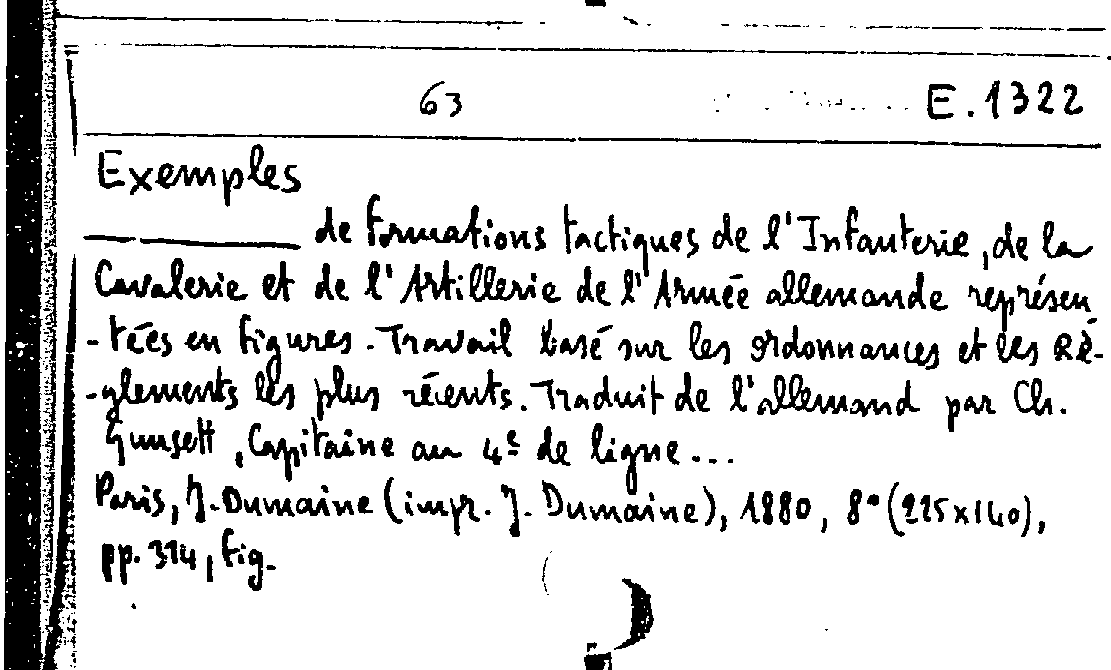 63 E.1322
Exemples
de formations tactiques de l'Infanterie, de la
Cavalerie et de l'Artillerie de l'Armée allemande représen
-tées en figures. Travail basé sur les ordonnances et les Rè-
-glements les plus récents. Traduit de l'allemand par Ch.
Gunsett, Capitaine au 4e de ligne...
Paris, J. Dumaine (impr. J. Dumaine), 1880, 8° (225x140),
pp. 314, fig.